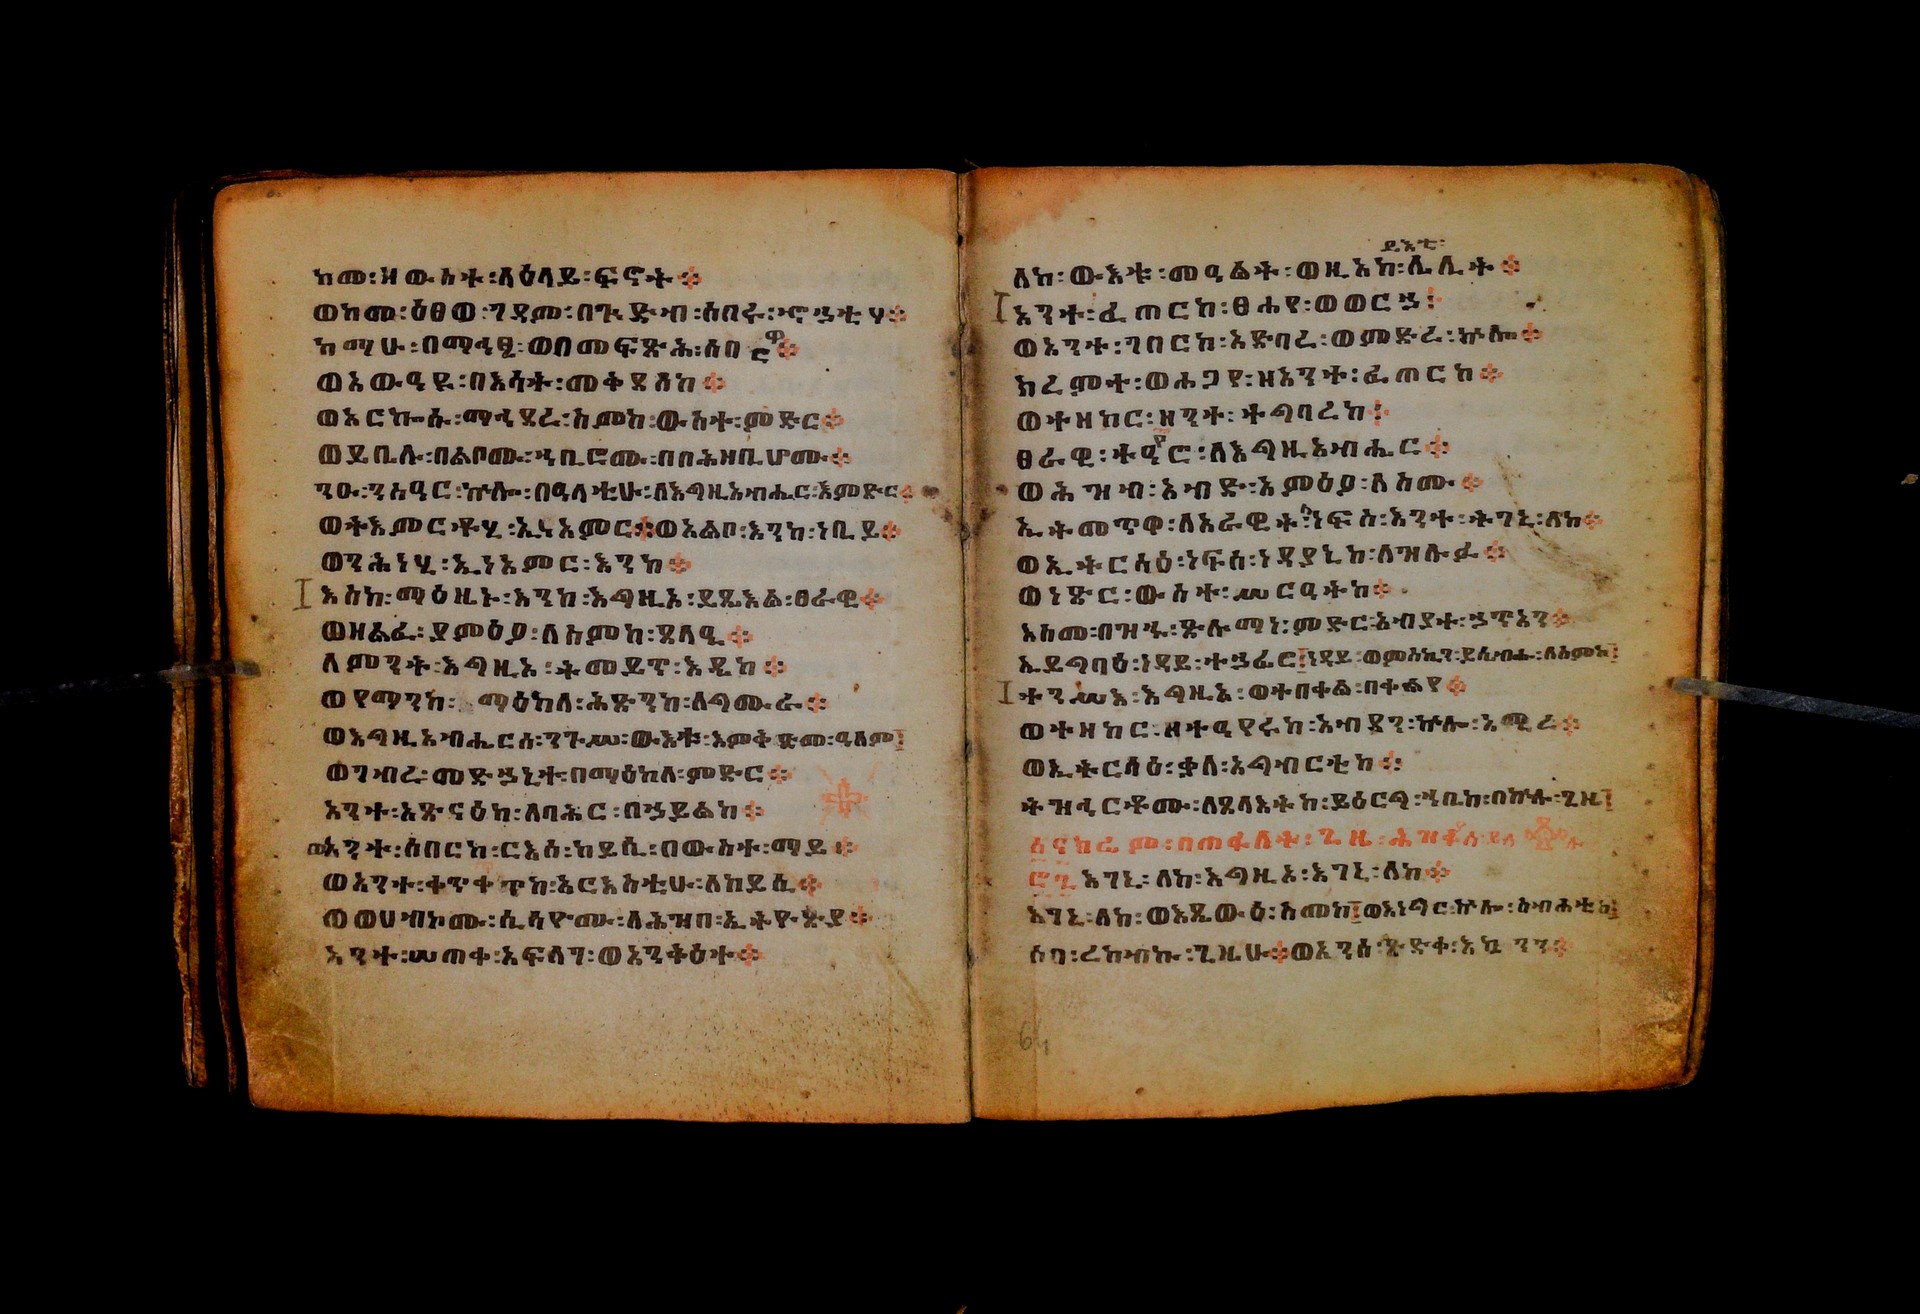 ከመ፡ዘውስተ፡ለዕላይ፡ፍኖት።
ወከመ፡ዕፀወ፡ገዳም፡በጉድብ፡ሰበሩ፡ኆኃቲሃ።
ከማሁ፡በማሒፄ፡ወበመፍጽሕ፡ሰበርዋ።
ወአውዓዩ፡በእሳት፡መቅደሰከ።
ወአርኰሱ፡ማኅደረ፡ስምከ፡ውስተ፡ምድር።
ወይቤሉ፡በልቦሙ፡ኅቢሮሙ፡በበሕዘቢሆሙ።
ንዑ፡ንስዓር፡ኵሎ፡በዓላቲሁ፡ለእግዚአብሔር፡እምድር።
ወትእምርቶሂ፡ኢናአምር፡ወአልቦ፡እንከ፡ነቢይ።
ወንሕነሂ፡ኢነአምር፡እንከ።
እስከ፡ማዕዜኑ፡እንከ፡እግዚኦ፡ይጼአል፡ፀራዊ።
ወዘልፈ፡ያምዕዖ፡ለስምከ፡ጸላዒ።
ለምንት፡እግዚኦ፡ትመይጥ፡እዴከ።
ወየማንከ፡ማዕከለ፡ሕፅንከ፡ለግሙራ።
ወእግዚአብሔርሰ፡ንጉሥ፡ውእቱ፡እምቅድመ፡ዓለም።
ወገብረ፡መድኃኒተ፡በማዕከለ፡ምድር።
አንተ፡አጽናዕከ፡ለባሕር፡በኃይልከ።
ወአንተ፡ሰበርከ፡ርእሰ፡ከይሲ፡በውስተ፡ማይ።
ወአንተ፡ቀጥቀጥከ፡አርእስቲሁ፡ለከይሲ።
ወወሀብኮሙ፡ሲሳዮሙ፡ለሕዝበ፡ኢትዮጵያ።
አንተ፡ሠጠቀ፡አፍላገ፡ወአንቅዕተ።
ይእቲ፡
ለከ፡ውእቱ፡መዓልት፡ወዚአከ፡ሌሊት።
አንተ፡ፈጠርከ፡ፀሐየ፡ወወርኃ፡
ወአንተ፡ገበርከ፡አድባረ፡ወምድረ፡ኵሎ።
ክረምተ፡ወሐጋየ፡ዘአንተ፡ፈጠርከ።
ወተዘከር፡ዘንተ፡ተግባረከ።
ፀራዊ፡ተዓየር፡ለእግዚአብሔር።
ወሕዝብ፡አብድ፡አምዕዖ፡ለስሙ።
ኢትመጥዋ፡ለአራዊት፡ነፍሰ፡እንተ፡ትገኒ፡ለከ።
ወኢትርሳዕ፡ነፍሰ፡ነዳያኒከ፡ለዝሉፉ።
ወነጽር፡ውስተ፡ሥርዓትከ።
እስመ፡በዝኁ፡ጽሉማነ፡ምድር፡አብያተ፡ኃጥአን።
ኢይግባዕ፡ነዳይ፡ተኃፊሮ።ነዳይ፡ወምስኪን፡ይሴብሑ፡ለስምከ።
ተንሥእ፡እግዚኦ፡ወተበቀል፡በቀልየ።
ወተዘከር፡ዘተዓየሩከ፡አብዳን፡ኵሎ፡አሚረ።
ወኢትርሳዕ፡ቃለ፡አግብርቲከ።
ትዝኅርቶሙ፡ለጸላእትከ፡ይዕርግ፡ኀቤከ፡በኵሉ፡ጊዜ።
አገኒ፡ለከ፡እግዚኦ፡እገኒ፡ለከ።
እገኒ፡ለከ፡ወእጼውዕ፡ስመከ።ወእነግር፡ኵሎ፡ስብሐቲከ።
ሶበ፡ረከብኩ፡ጊዜሁ።ወአንሰ፡ጽድቀ፡እኴንን።